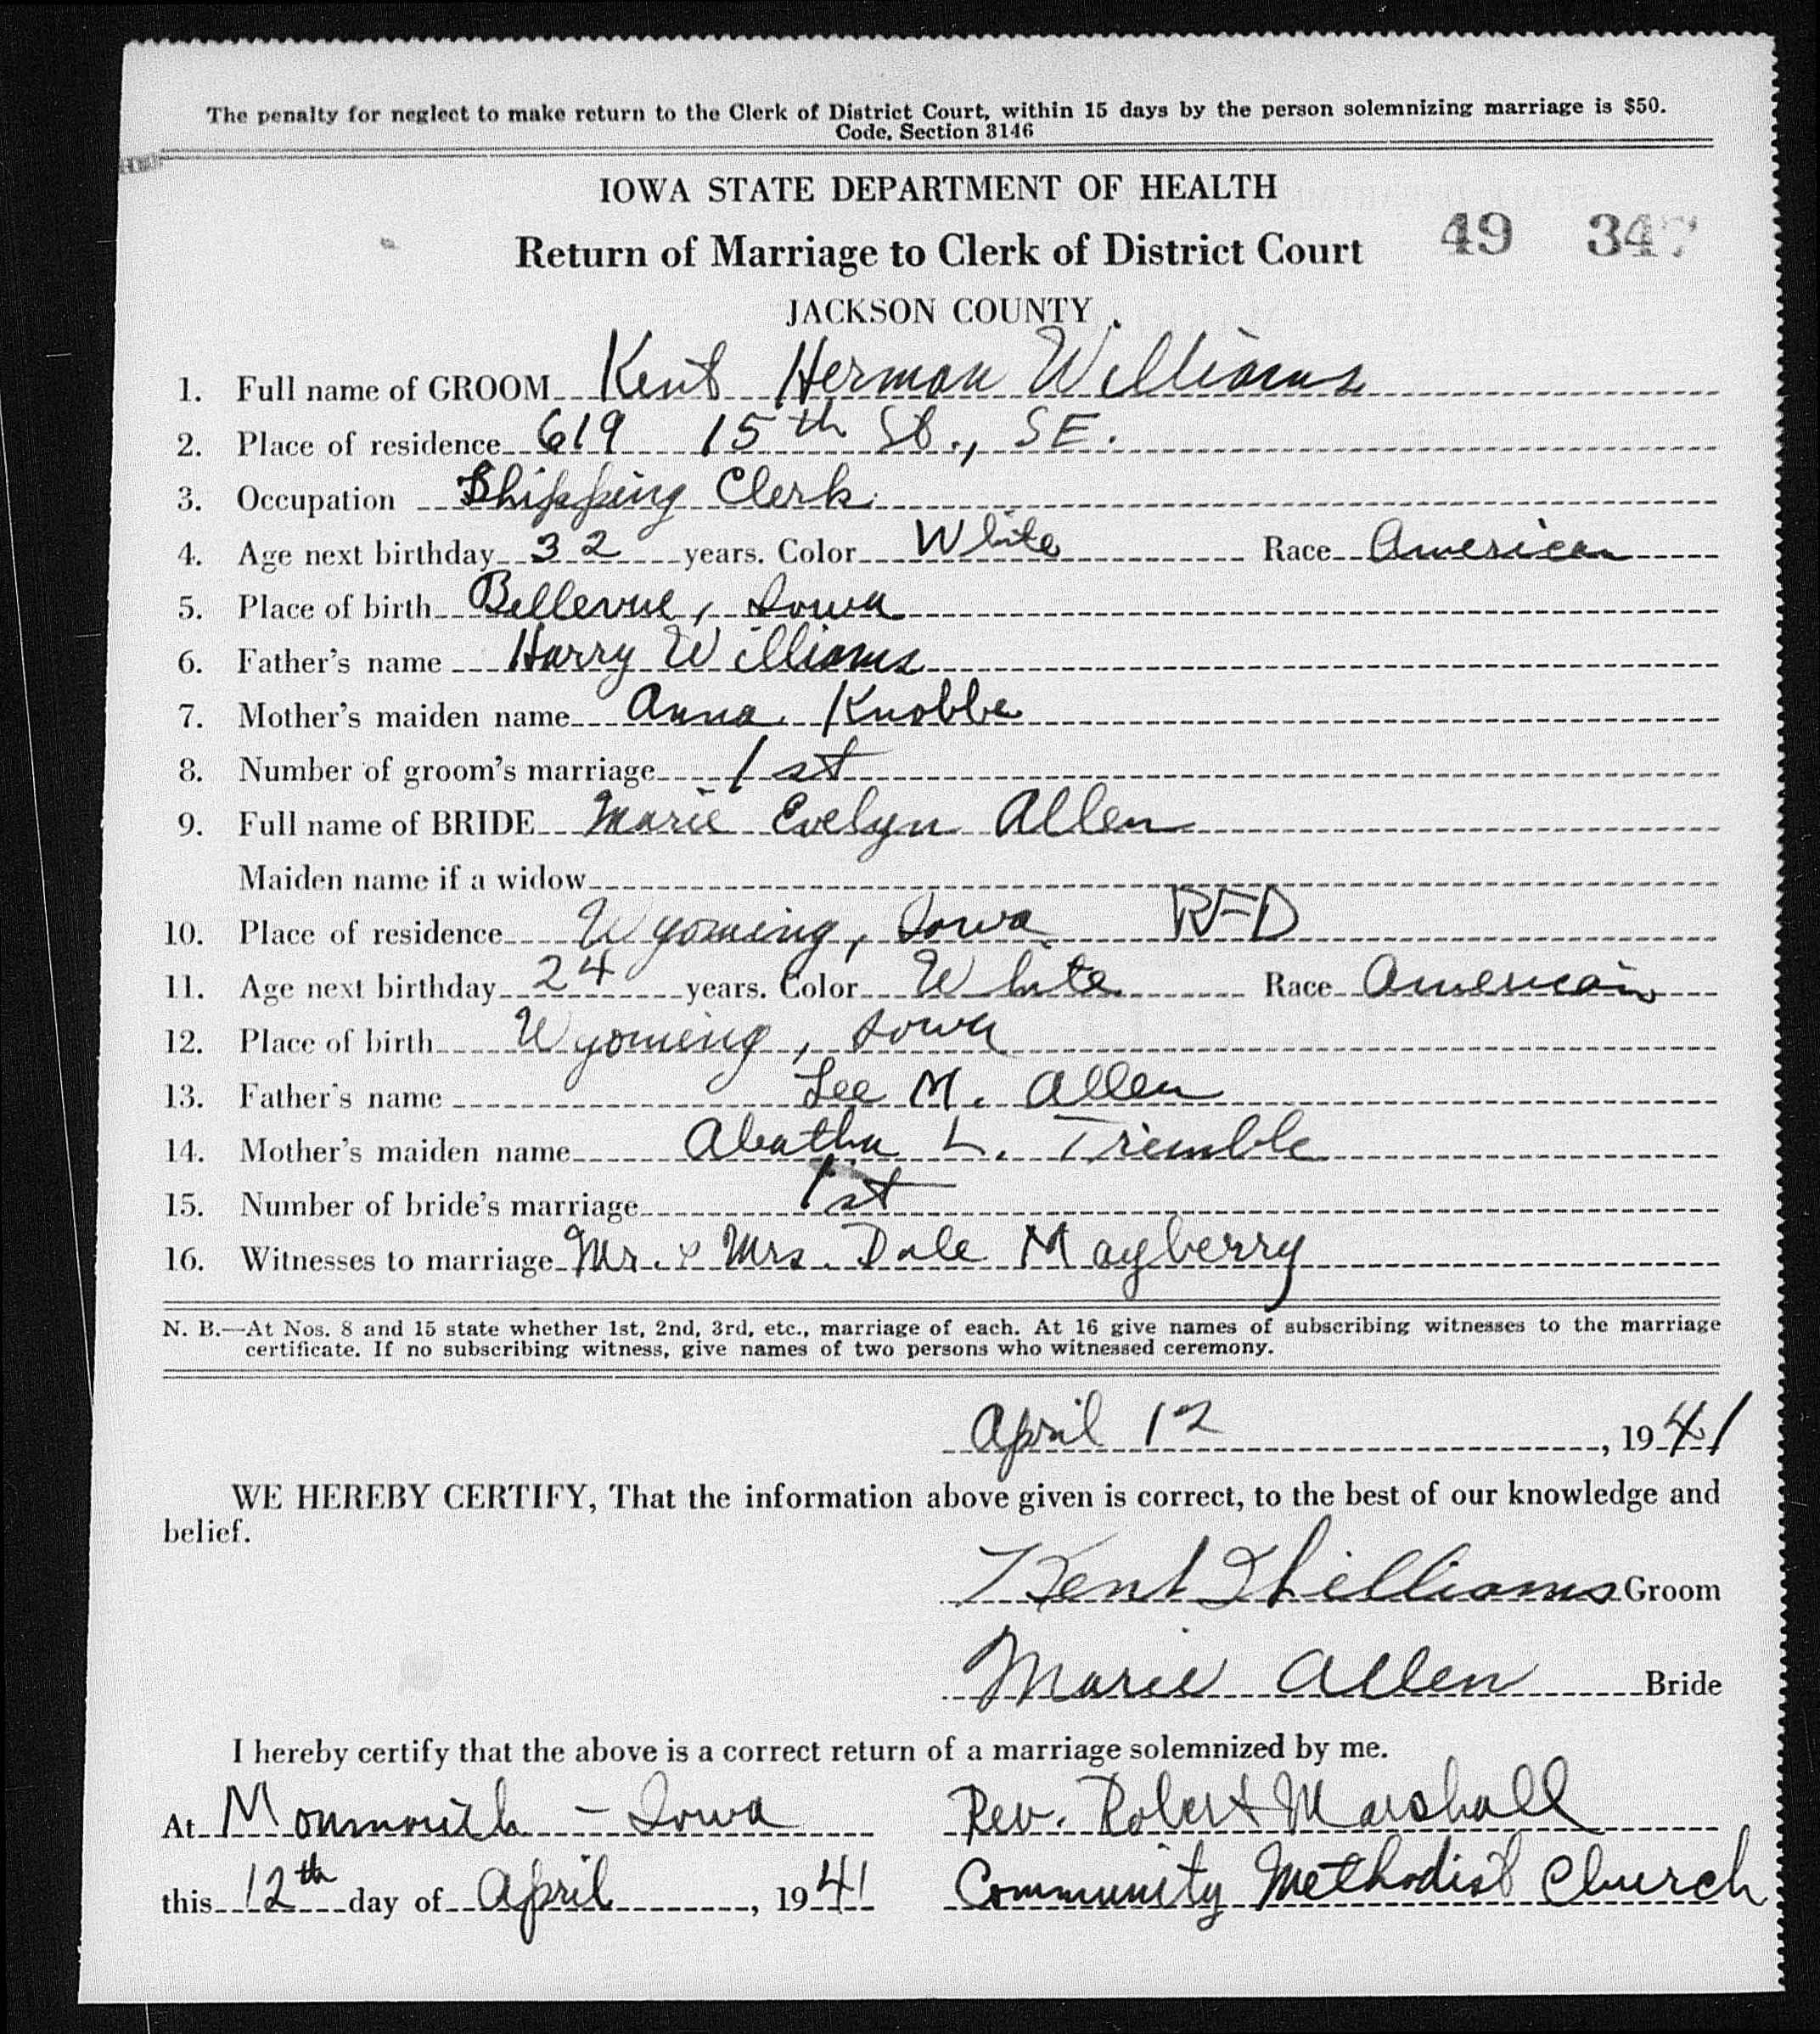 The penalty for neglect to make return to the Clerk of District Court, within 15 days by the person solemnizing marriage is $50.
Code, Section 3146
IOWA STATE DEPARTMENT OF HEALTH
Return of Marriage to Clerk of District Court 49 347
JACKSON COUNTY
1. Full name of GROOM Kent Herman Williams
2. Place of residence 619 15th St., SE.
3. Occupation Shipping Clerk
4. Age next birthday 32 years. Color White Race American
5. Place of birth Bellevue, Iowa
6. Father's name Harry Williams
7. Mother's maiden name Anna Knobbe
8. Number of groom's marriage 1st
9. Full name of BRIDE Marie Evelyn Allen
Maiden name if a widow
10. Place of residence Wyoming, Iowa RFD
11. Age next birthday 24 years. Color White Race American
12. Place of birth Wyoming, Iowa
13. Father's name Lee M. Allen
14. Mother's maiden name L. Trimble
15. Number of bride's marriage 1st
16. Witnesses to marriage Mr. & Mrs. Dale Mayberry
N. B.—At Nos. 8 and 15 state whether 1st, 2nd, 3rd, etc., marriage of each. At 16 give names of subscribing witnesses to the marriage
certificate. If no subscribing witness, give names of two persons who witnessed ceremony.
April 12, 1941
WE HEREBY CERTIFY, That the information above given is correct, to the best of our knowledge and
belief.
Kent Williams Groom
Marie Allen Bride
I hereby certify that the above is a correct return of a marriage solemnized by me.
At Monmouth - Iowa Rev. Robert Marshall
this 12th day of April, 1941 Community Methodist Church